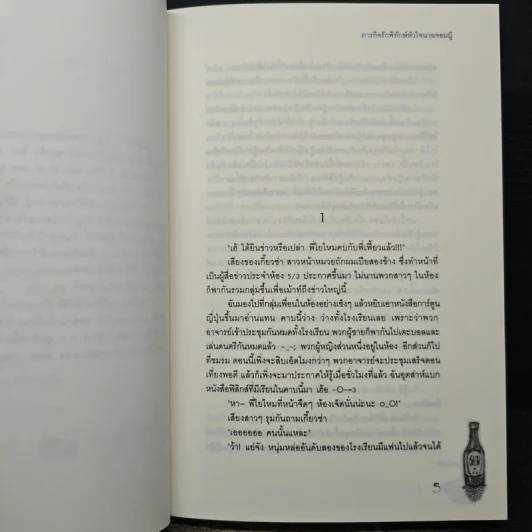 ภารกิจรักพิทักษ์หัวใจนายจอมบู๊
1
"เฮ้ ได้ยินข่าวหรือเปล่า พี่ใยไหมคบกับพี่เฟี้ยวแล้ว!!!"
เสียงของเกี้ยวซ่า สาวหน้าหมวยถักผมเปียสองข้าง ซึ่งทำหน้าที่
เป็นผู้สื่อข่าวประจำห้อง 5/3 ประกาศขึ้นมา ไม่นานพวกสาวๆ ในห้อง
ก็พากันรวมกลุ่มขึ้นเพื่อเม้าท์ถึงข่าวใหญ่นี้
ฉันมองไปที่กลุ่มเพื่อนในห้องอย่างเซ็งๆ แล้วหยิบเอาหนังสือการ์ตูน
ญี่ปุ่นขึ้นมาอ่านแทน คาบนี้ว่าง ว่างทั้งโรงเรียนเลย เพราะว่าพวก
อาจารย์เข้าประชุมกันหมดทั้งโรงเรียน พวกผู้ชายก็พากันไปเตะบอลและ
เล่นดนตรีกันหมดแล้ว -_-; พวกผู้หญิงส่วนหนึ่งอยู่ในห้อง อีกส่วนก็ไป
ที่ชมรม ตอนนี้เพิ่งจะสิบเอ็ดโมงกว่าๆ พวกอาจารย์จะประชุมเสร็จตอน
เที่ยงพอดี แล้วก็เพิ่งจะมาประกาศให้รู้เมื่อชั่วโมงที่แล้ว ฉันอุตส่าห์แบก
หนังสือฟิสิกส์ที่มีเรียนในคาบนี้มา เฮ้อ -O-=3
"หา~ พี่ใยไหมที่หน้าจืดๆ ห้องเจ็ดนั่นน่ะนะ o_O!"
เสียงสาวๆ รุมกันถามเกี้ยวซ่า
"เออออออ คนนั้นแหละ"
"ว้า! แย่จัง หนุ่มหล่ออันดับสองของโรงเรียนมีแฟนไปแล้วจนได้
5